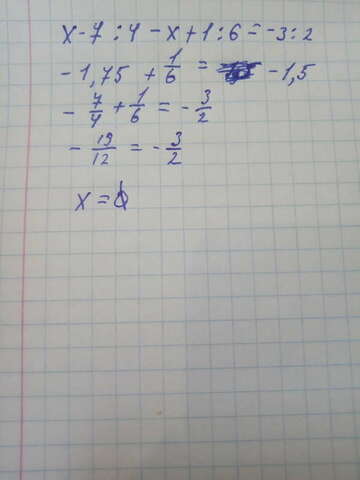 x - 7 : 4 - x + 1 : 6 = -3 : 2
- 1,75 + 1/6 = - 1,5
- 7/4 + 1/6 = - 3/2
- 19/12 = - 3/2
x =